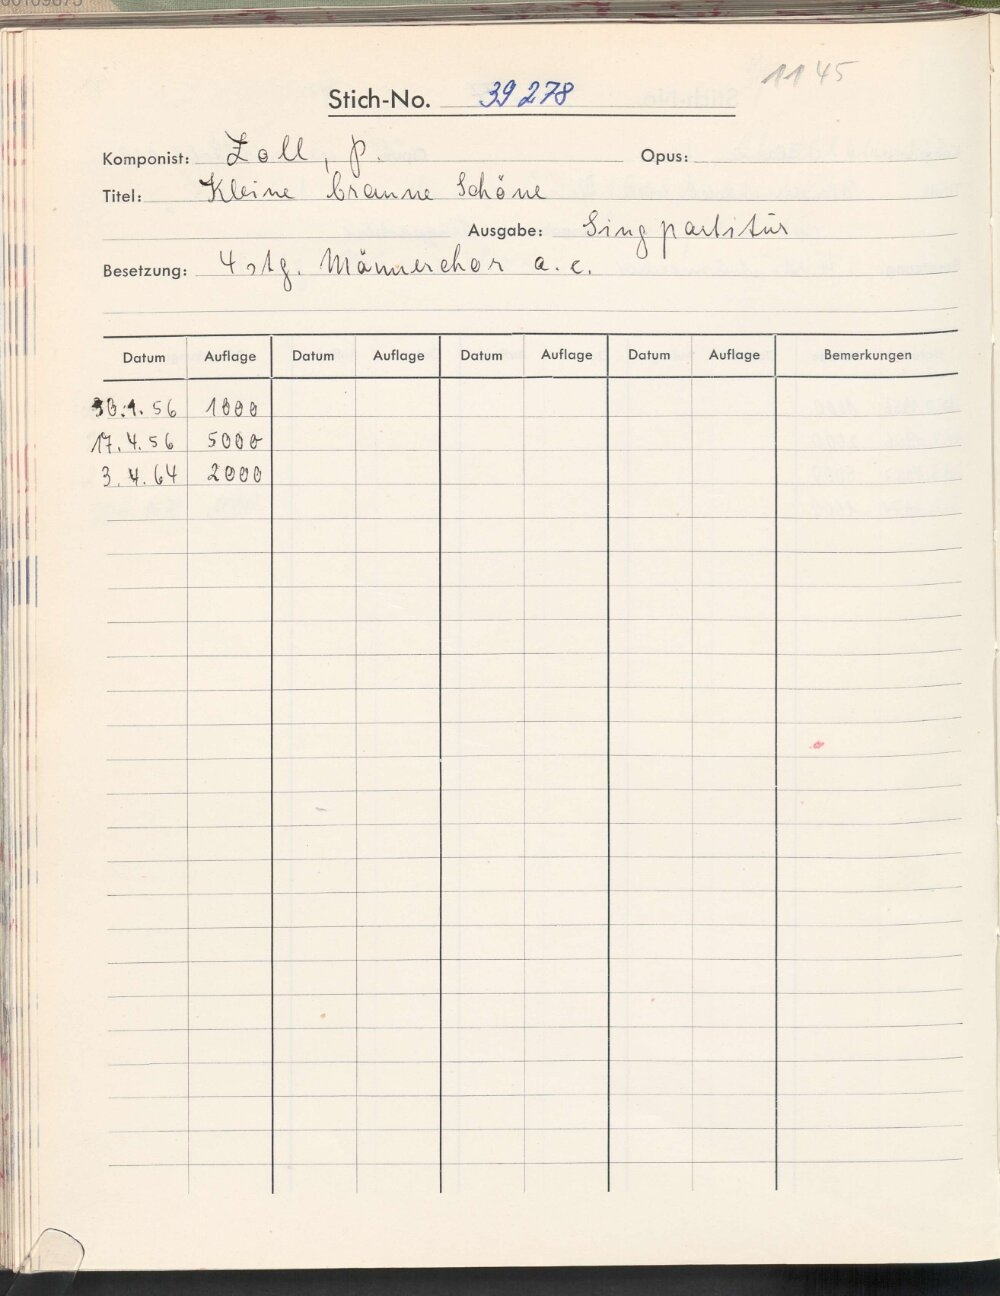 1145
Stich-No. 39 278
Komponist: Zoll, P. Opus:
Titel: Kleine braune Schöne
Ausgabe: Singpartitur
Besetzung: 4 stg. Männerchor a. c.
Datum Auflage Datum Auflage Datum Auflage Datum Auflage Bemerkungen
30.1.56 1000
17.4.56 5000
3.4.64 2000